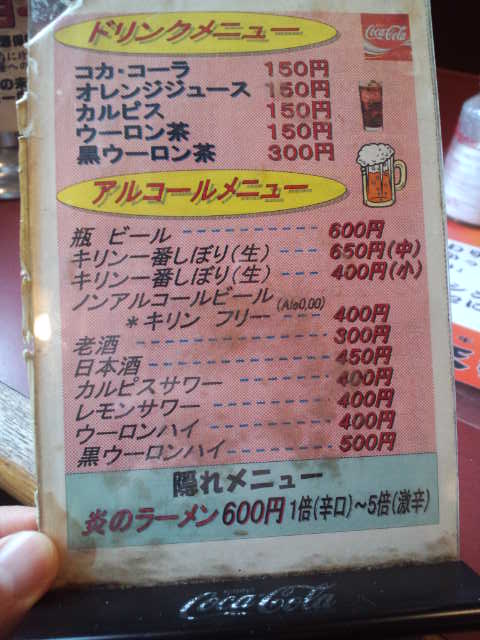 ドリンクメニュー
Coca-Cola
コカ・コーラ 150円
オレンジジュース 150円
カルピス 150円
ウーロン茶 150円
黒ウーロン茶 300円
アルコールメニュー
瓶 ビール 600円
キリン一番しぼり(生) 650円(中)
キリン一番しぼり(生) 400円(小)
ノンアルコールビール
(Alc0,00)
*キリン フリー 400円
老酒 300円
日本酒 450円
カルピスサワー 400円
レモンサワー 400円
ウーロンハイ 400円
黒ウーロンハイ 500円
隠れメニュー
炎のラーメン 600円 1倍(辛口)～5倍(激辛)
Coca-Cola